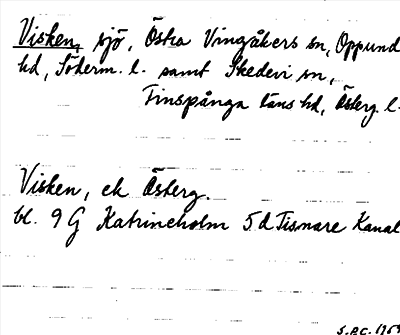 Visken, sjö, Östra Vingåkers sn, Oppunda
hd, Söderm. l. samt Skedevi sn,
Finspånga läns hd, Österg. l.
Visken, ek Österg.
bl. 9 G Katrineholm 5 d Tisnare Kanal